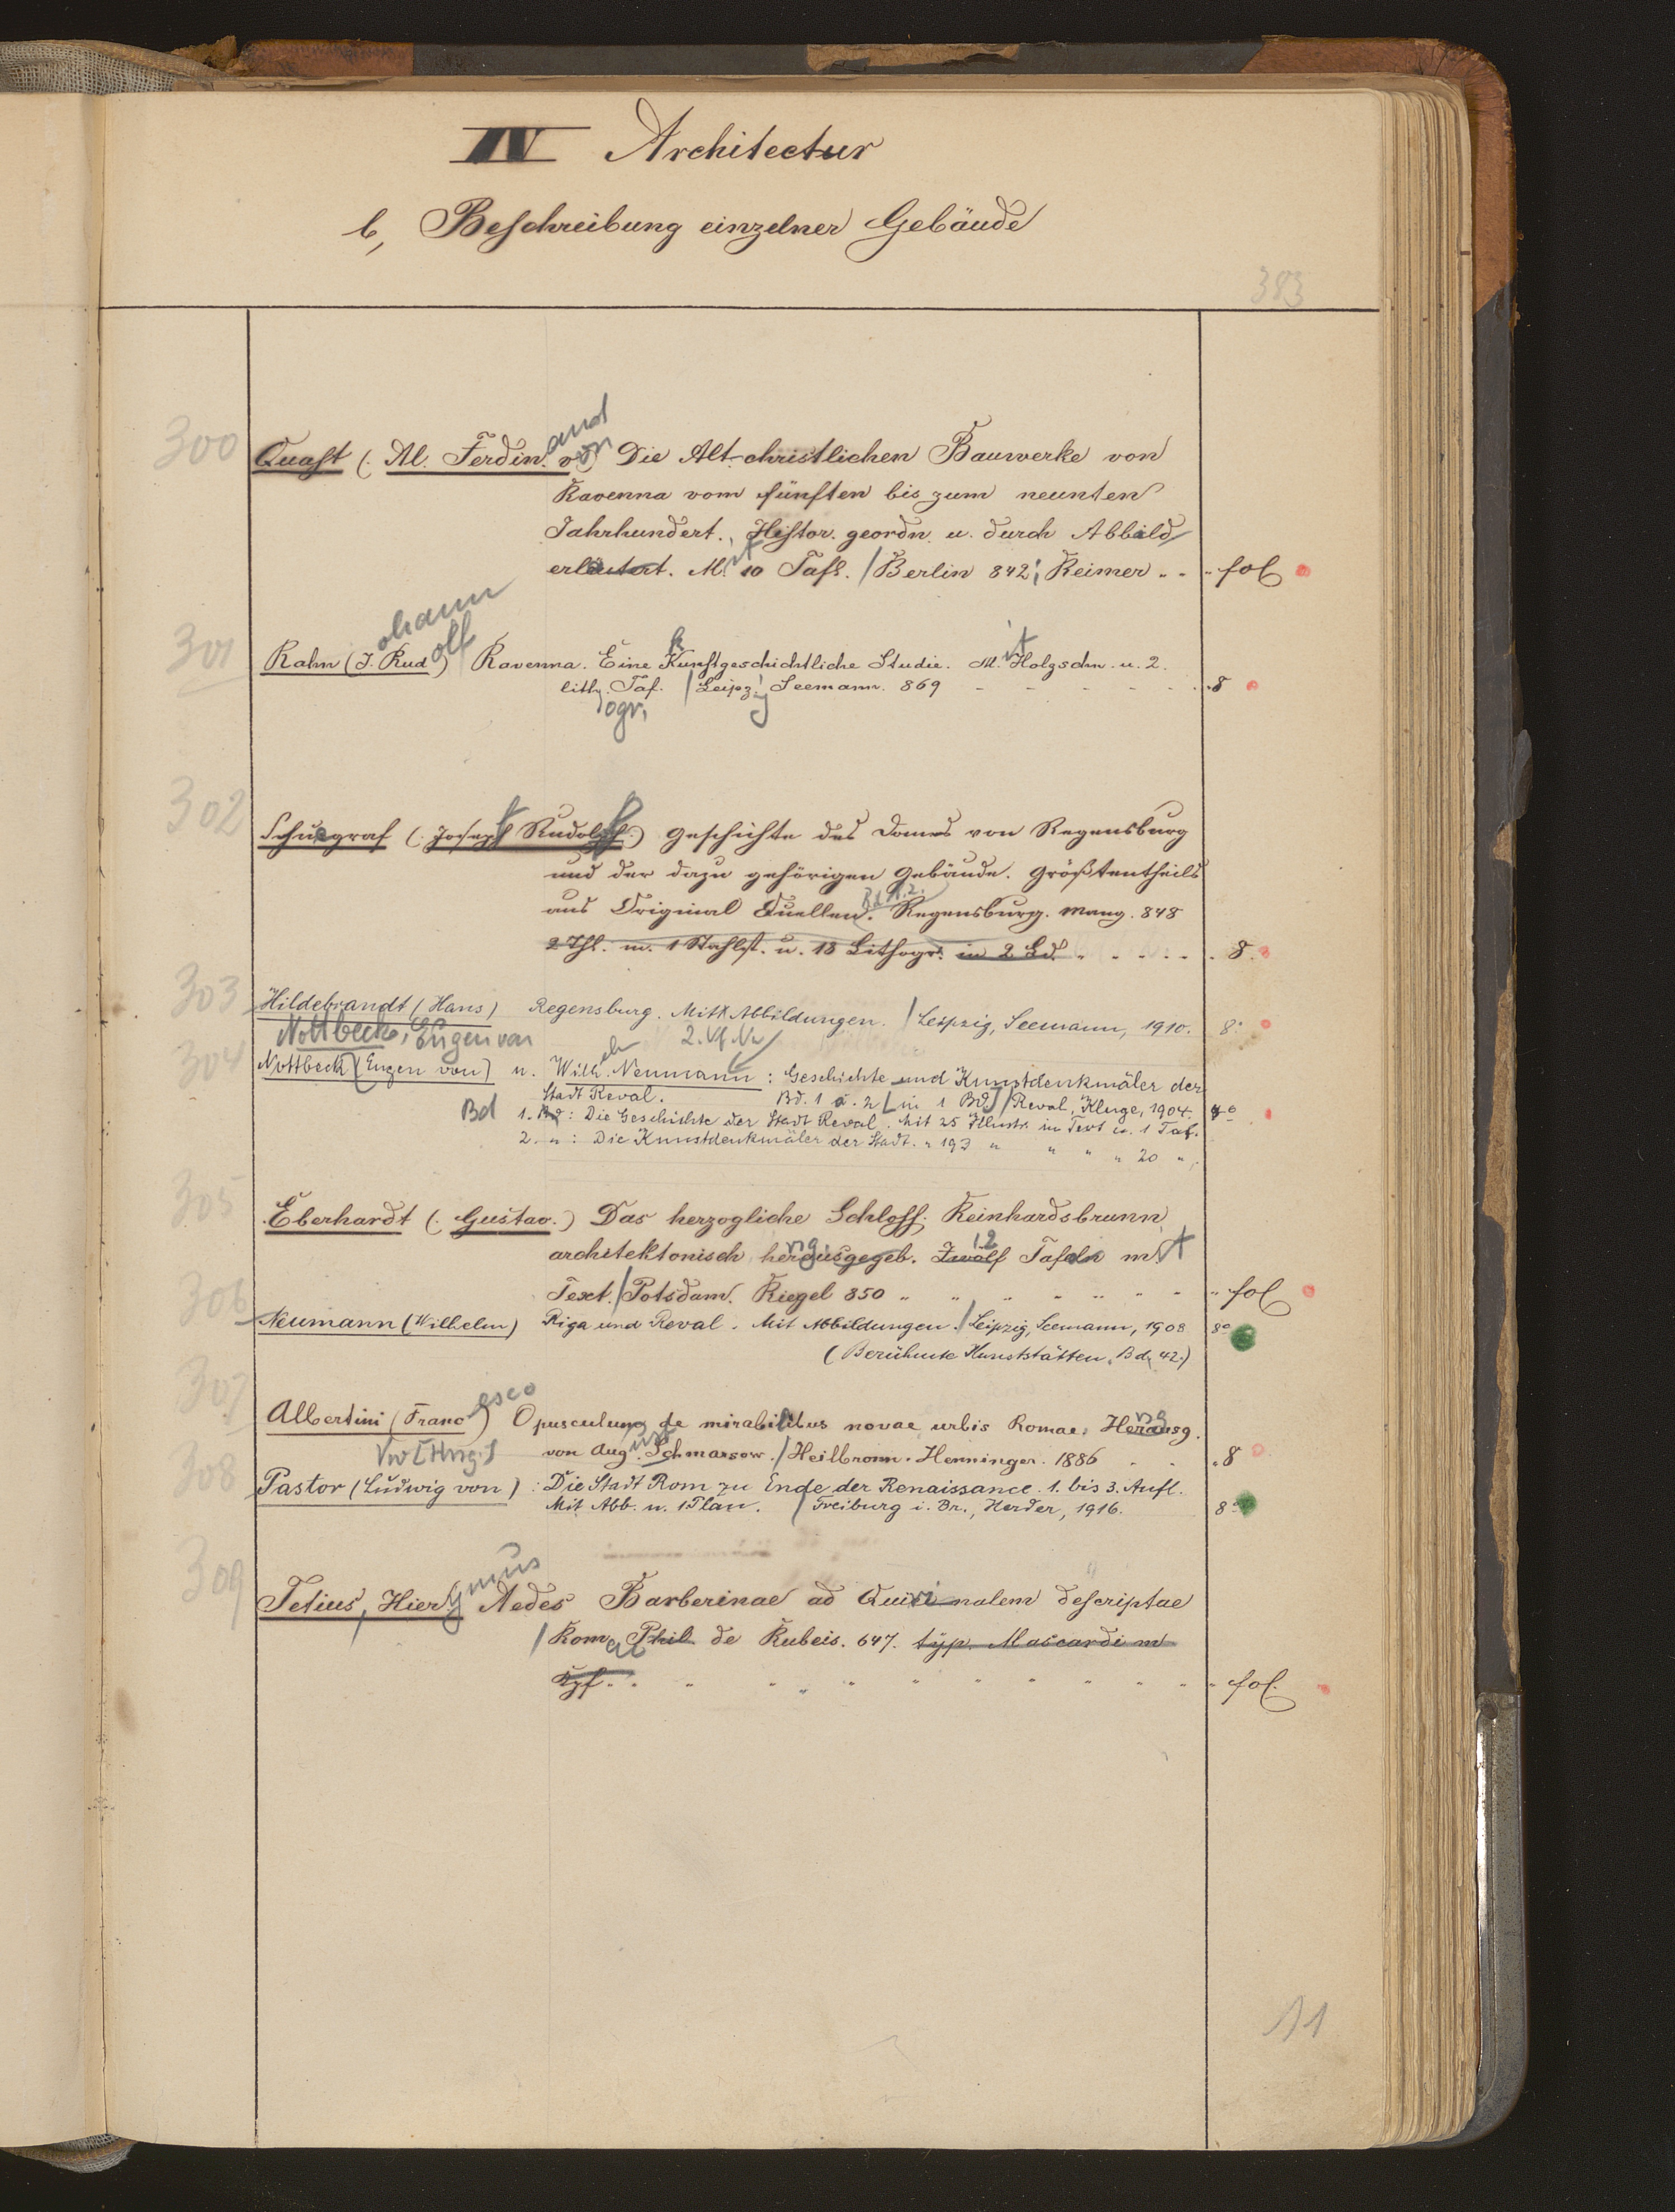 IV Architectur
b, Beschreibung einzelner Gebäude
383
300 Quast (: Al. Ferdin.and von) Die Alt-christlichen Bauwerke von
Ravenna vom fünften bis zum neunten
Jahrhundert., Histor. geordn. u. durch Abbild
erläutert. Mit 10 Tafl. / Berlin 842; Reimer " " " fol
301 Rahn (J.ohann Rudolf) Ravenna. Eine kunstgeschichtliche Studie. Mit Holzschn. u. 2.
lithogr. Taf. / Leipzig Seemann. 869 - - - - - - 8
302 Schuegraf (: Joseph Rudolph:) Geschichte des Domes von Regensburg
und der dazu gehörigen Gebäude. Größtentheils
Bd 1.2.
aus Original Quellen. Regensburg. Manz. 848
2 Thl. m. 1 Stahlst. u. 18 Lithogr. in 2 Bd. " - - - - . 8.
303 Hildebrandt (Hans) Regensburg. Mit Abbildungen. / Leipzig, Seemann, 1910. 8°
Nottbeck, Eugen von 2. Vf. Vw
304 Nottbeck (Eugen von) u. Wilh.elm Neumann: Geschichte und Kunstdenkmäler der
Stadt Reval. Bd. 1 u. 2 [in 1 Bd] / Reval, Kluge, 1904. 4°
Bd 1. Bd: Die Geschichte der Stadt Reval. Mit 25 Illustr. im Text u. 1 Taf.
2. " : Die Kunstdenkmäler der Stadt. " 193 " " " " 20 ".
305 Eberhardt (: Gustav.) Das herzogliche Schloss Reinhardsbrunn
architektonisch herausgegeb. Zwölf 12 Tafeln mit
Text. / Potsdam. Riegel 850 " " " " " " " " fol
306 Neumann (Wilhelm) Riga und Reval. Mit Abbildungen. / Leipzig, Seemann, 1908 8°
(Berühmte Kunststätten. Bd. 42.)
307 Albertini (Francesco) Opusculum de mirabilibus novae urbis Romae. Herausg.
Vw [Hrsg.] von Aug.ust Schmarsow. / Heilbronn. Henninger. 1886 . . . 8
308 Pastor (Ludwig von) : Die Stadt Rom zu Ende der Renaissance. 1. bis 3. Aufl.
Mit Abb. u. 1 Plan. / Freiburg i. Br., Herder, 1916. 8°
309 Tetius, Hieronymus Aedes Barberinae ad Quirinalem descriptae
/ Romae Phil. de Rubeis. 647. typ. Mascardi m
Kpf. " " " " " " " " " " " fol.
11